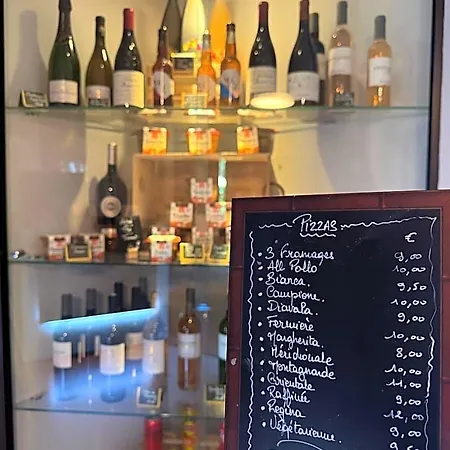 PIZZAS
€
• 3 Fromages 9,00
• All Pollo 10,00
• Bianca 9,50
• Campione 10,00
• Diavala 9,00
• Fermière 10,00
• Margherita 8,00
• Méridionale 10,00
• Montagnarde 11,00
• Orientale 9,00
• Raffinée 12,00
• Regina 9,00
• Végétarienne 9,50